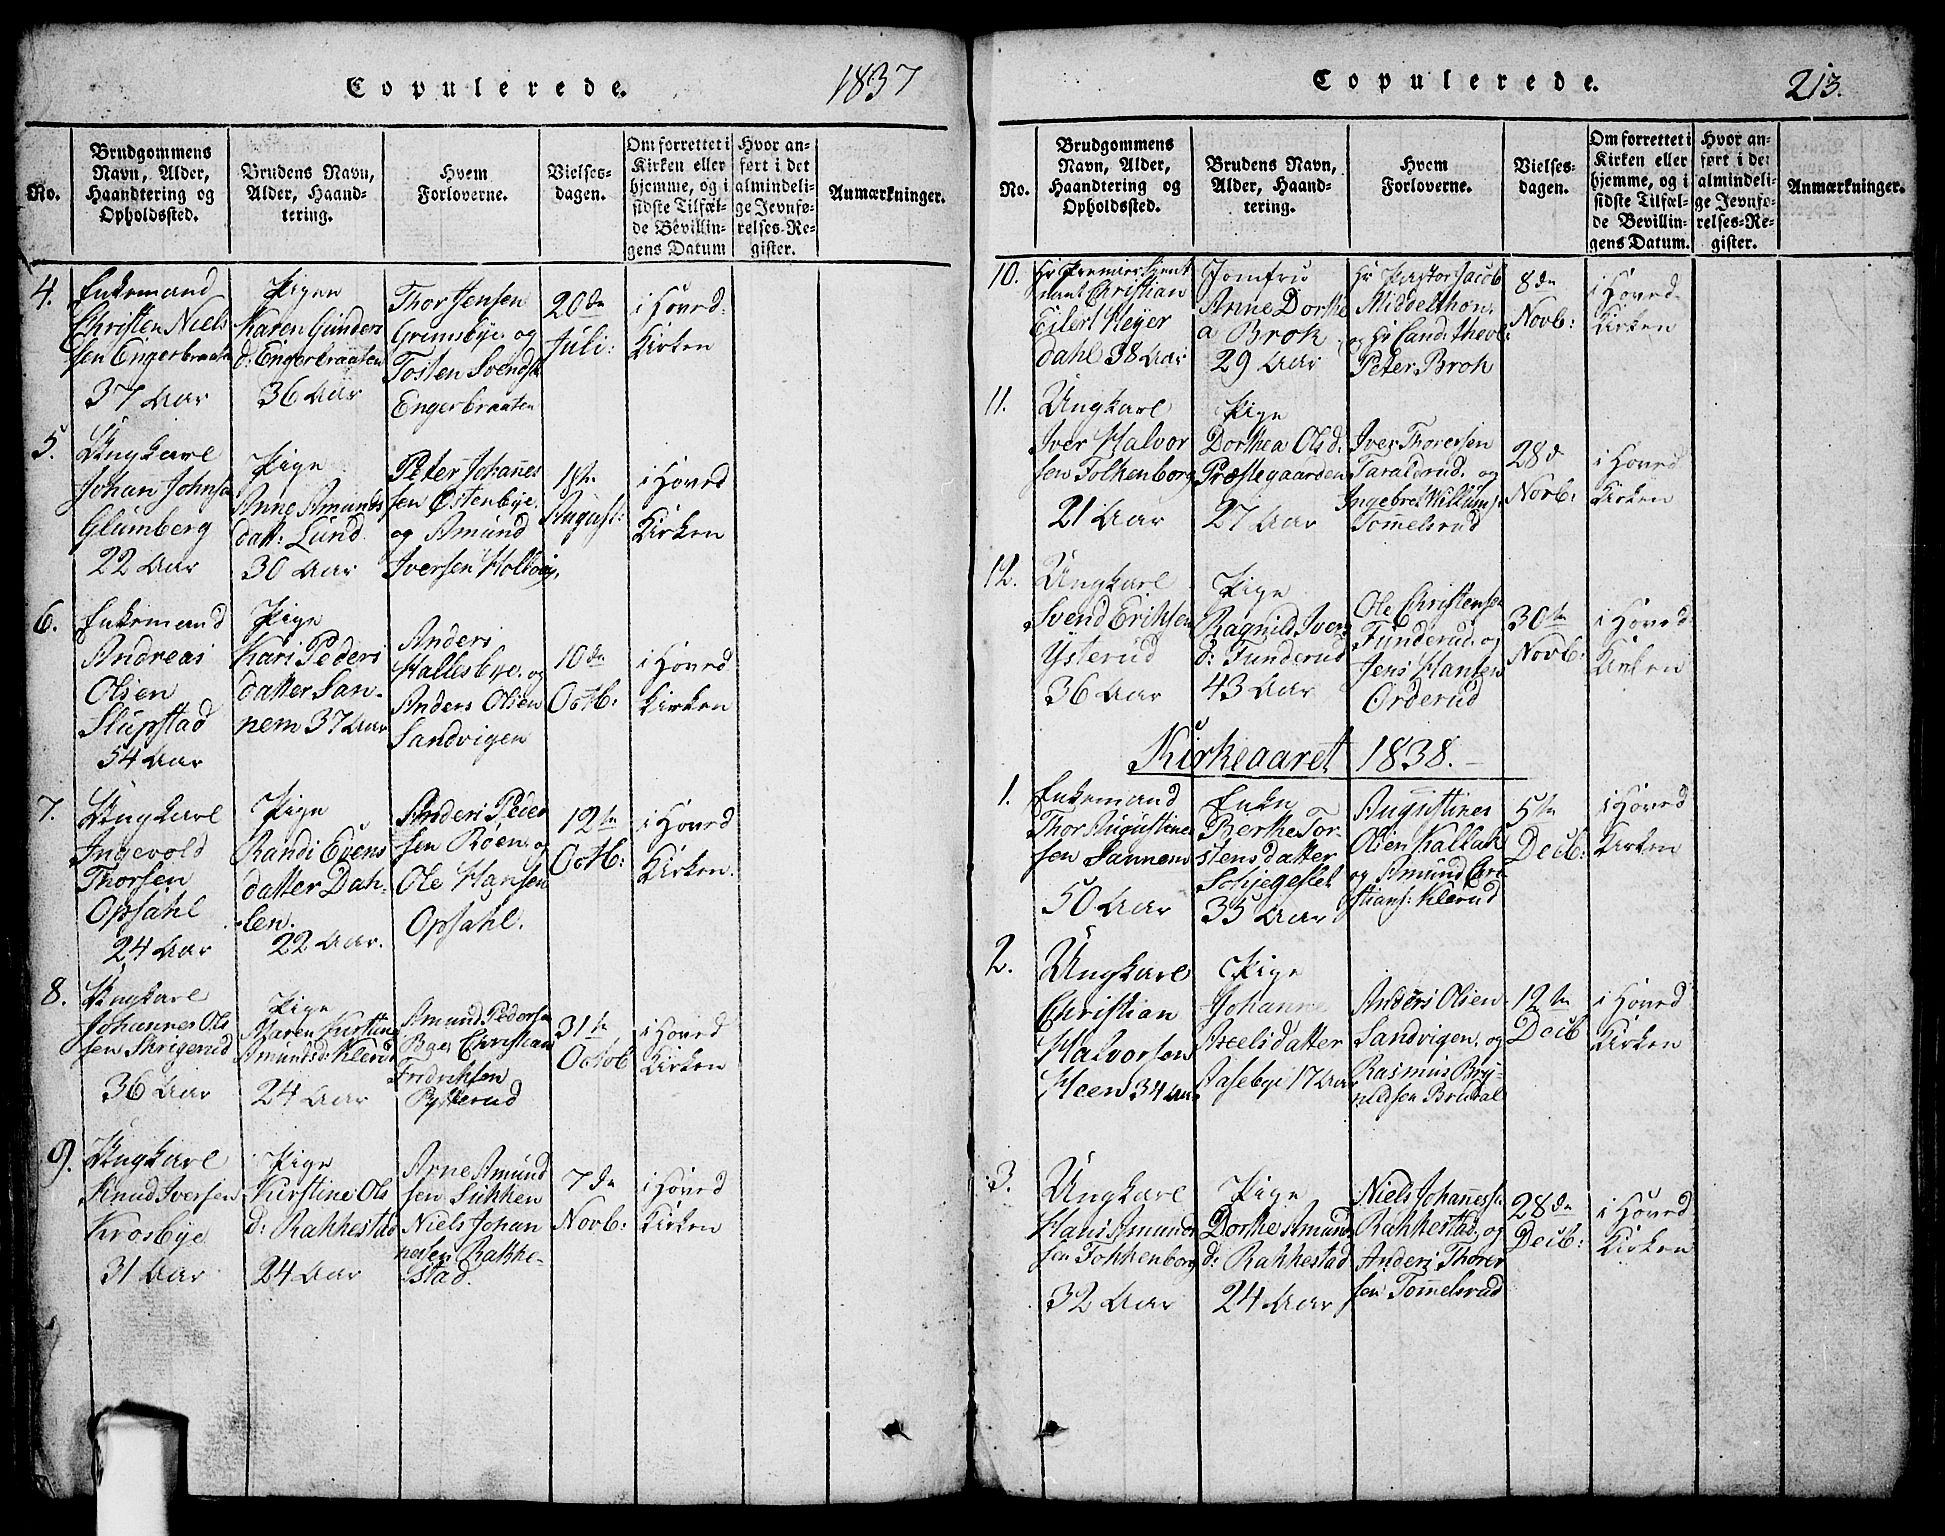 Copulerede. 1837
No.
Brudgommens
Navn, Alder,
Haandtering og
Opholdssted.
Brudens Navn,
Alder, Haand-
tering.
Hvem
Forloverne.
Vielses-
dagen.
Om forrettet i
Kirken eller
hjemme, og i
sidste Tilfæl-
de Bevillin-
gens Datum
Hvor an-
ført i det
almindeli-
ge Jevnfø-
relses-Re-
gister.
Anmærkninger.
4.
Enkemand
Christen Niels
sen Engerbraaten
37 Aar
Pigen
Karen Gunders
d: Engerbraaten
36 Aar
Thor Jensen
Grimsbye. og
Tosten Svends.
Engerbraaten
20de
Juli:
i Hoved-
Kirken
5.
Ungkarl
Johan Johnsen
Glumberg
22 Aar
Pige
Anne Amunds
datt: Lund.
30 Aar
Peter Johanes
sen Østenbye.
og Amund
Iversen Holtvig.
18de
August:
i Hoved
Kirken
6.
Enkemand
Andreas
Olsen
Slupstad
54 Aar
Pige
Kari Peders
datter San-
nem 37 Aar
Anders
Hallesbye. og
Anders Olsen
Sandvigen
10de
Octb:
i Hoved
Kirken
7.
Ungkarl
Ingevold
Thorsen
Opsahl
24 Aar
Pige
Randi Evens
datter Dah-
len.
22 Aar.
Anders Peder
sen Røen. og
Ole Hansen
Opsahl.
12te
Octb:
i Hoved
Kirken.
8.
Ungkarl
Johannes Ols
sen Skrigerud
36 Aar
Pige
Maren Kirstine
Amundsd: Klerud
24 Aar
Amund Pedersen
Bae Christian
Fridriksen
Pytterud
31te
Octob
i Hoved
Kirken
9.
Ungkarl
Knud Iversen
Krosbye
31 Aar
Pige
Kirstine Ols
d: Rakkestad
24 Aar
Arne Amund
sen Sukken
Niels Johan
nesen Rakke-
stad.
7de
Novb:
i Hoved
Kirken
Copulerede. 213.
No.
Brudgommens
Navn, Alder,
Haandtering og
Opholdssted.
Brudens Navn,
Alder, Haand-
tering.
Hvem
Forloverne.
Vielses-
dagen.
Om forrettet i
Kirken eller
hjemme, og i
sidste Tilfæl-
de Bevillin-
gens Datum.
Hvor an-
ført i det
almindeli-
ge Jevnfø-
relses-Re-
gister.
Anmærkninger.
10.
Hr Premier Lieut
nant Christian
Eilert Meyer
Dahl 38 Aar
Jomfru
Anne Dorthe
a Brok
29 Aar
Hr Pastor Jacob
Middelthon,
og Hr Cand: theol:
Peter Brok
8de
Novb:
i Hoved-
Kirken
11.
Ungkarl
Iver Halvor
sen Folkenborg
21 Aar
Pige
Dorthea Olsd:
Præstegaarden
27 Aar
Iver Thoresen
Taraldrud. og
Ingebret Willums:
Tomelsrud
28de
Novb:
i Hoved
Kirken
12.
Ungkarl
Svend Eriksen
Ysterud
36 Aar
Pige
Ragnild Ivers
d: Funderud
43 Aar
Ole Christensen
Funderud. og
Jens Hansen
Orderud
30te
Novb:
i Hoved
Kirken
Kirkeaaret 1838.
1.
Enkemand
Thor Augustine
sen Sannem
50 Aar
Enke
Berthe Tor-
stensdatter
Schjegeslet
35 Aar
Augustines
Olsen Kallak
og Amund Cri
stians: Klerud
5te
Decb:
i Hoved
Kirken
2.
Ungkarl
Christian
Halvorsen
Heen 34 Aar
Pige
Johanne
Axelsdatter
Aasebye 17 Aar
Anders Olsen
Sandvigen. og
Rasmus Bry-
nildsen Brudal
12te
Decb
i Hoved
Kirken
3.
Ungkarl
Hans Amund
sen Tokkenborg
32 Aar
Pige
Dorthe Amunds
d: Rakkestad
24 Aar
Niels Johanesse
Rakkestad. og
Anders Thorer
sen Tomelsrud
28de
Decb:
i Hoved
Kirken